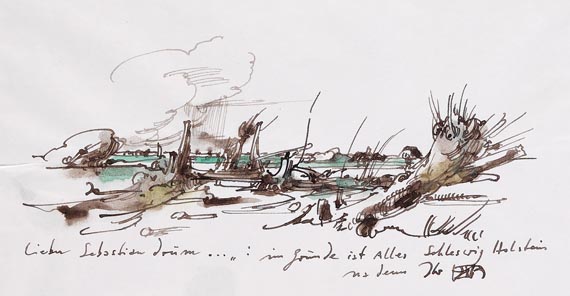 Lieber Sebastian drum ...,, : im Grunde ist Alles Schleswig Holstein
Ihr